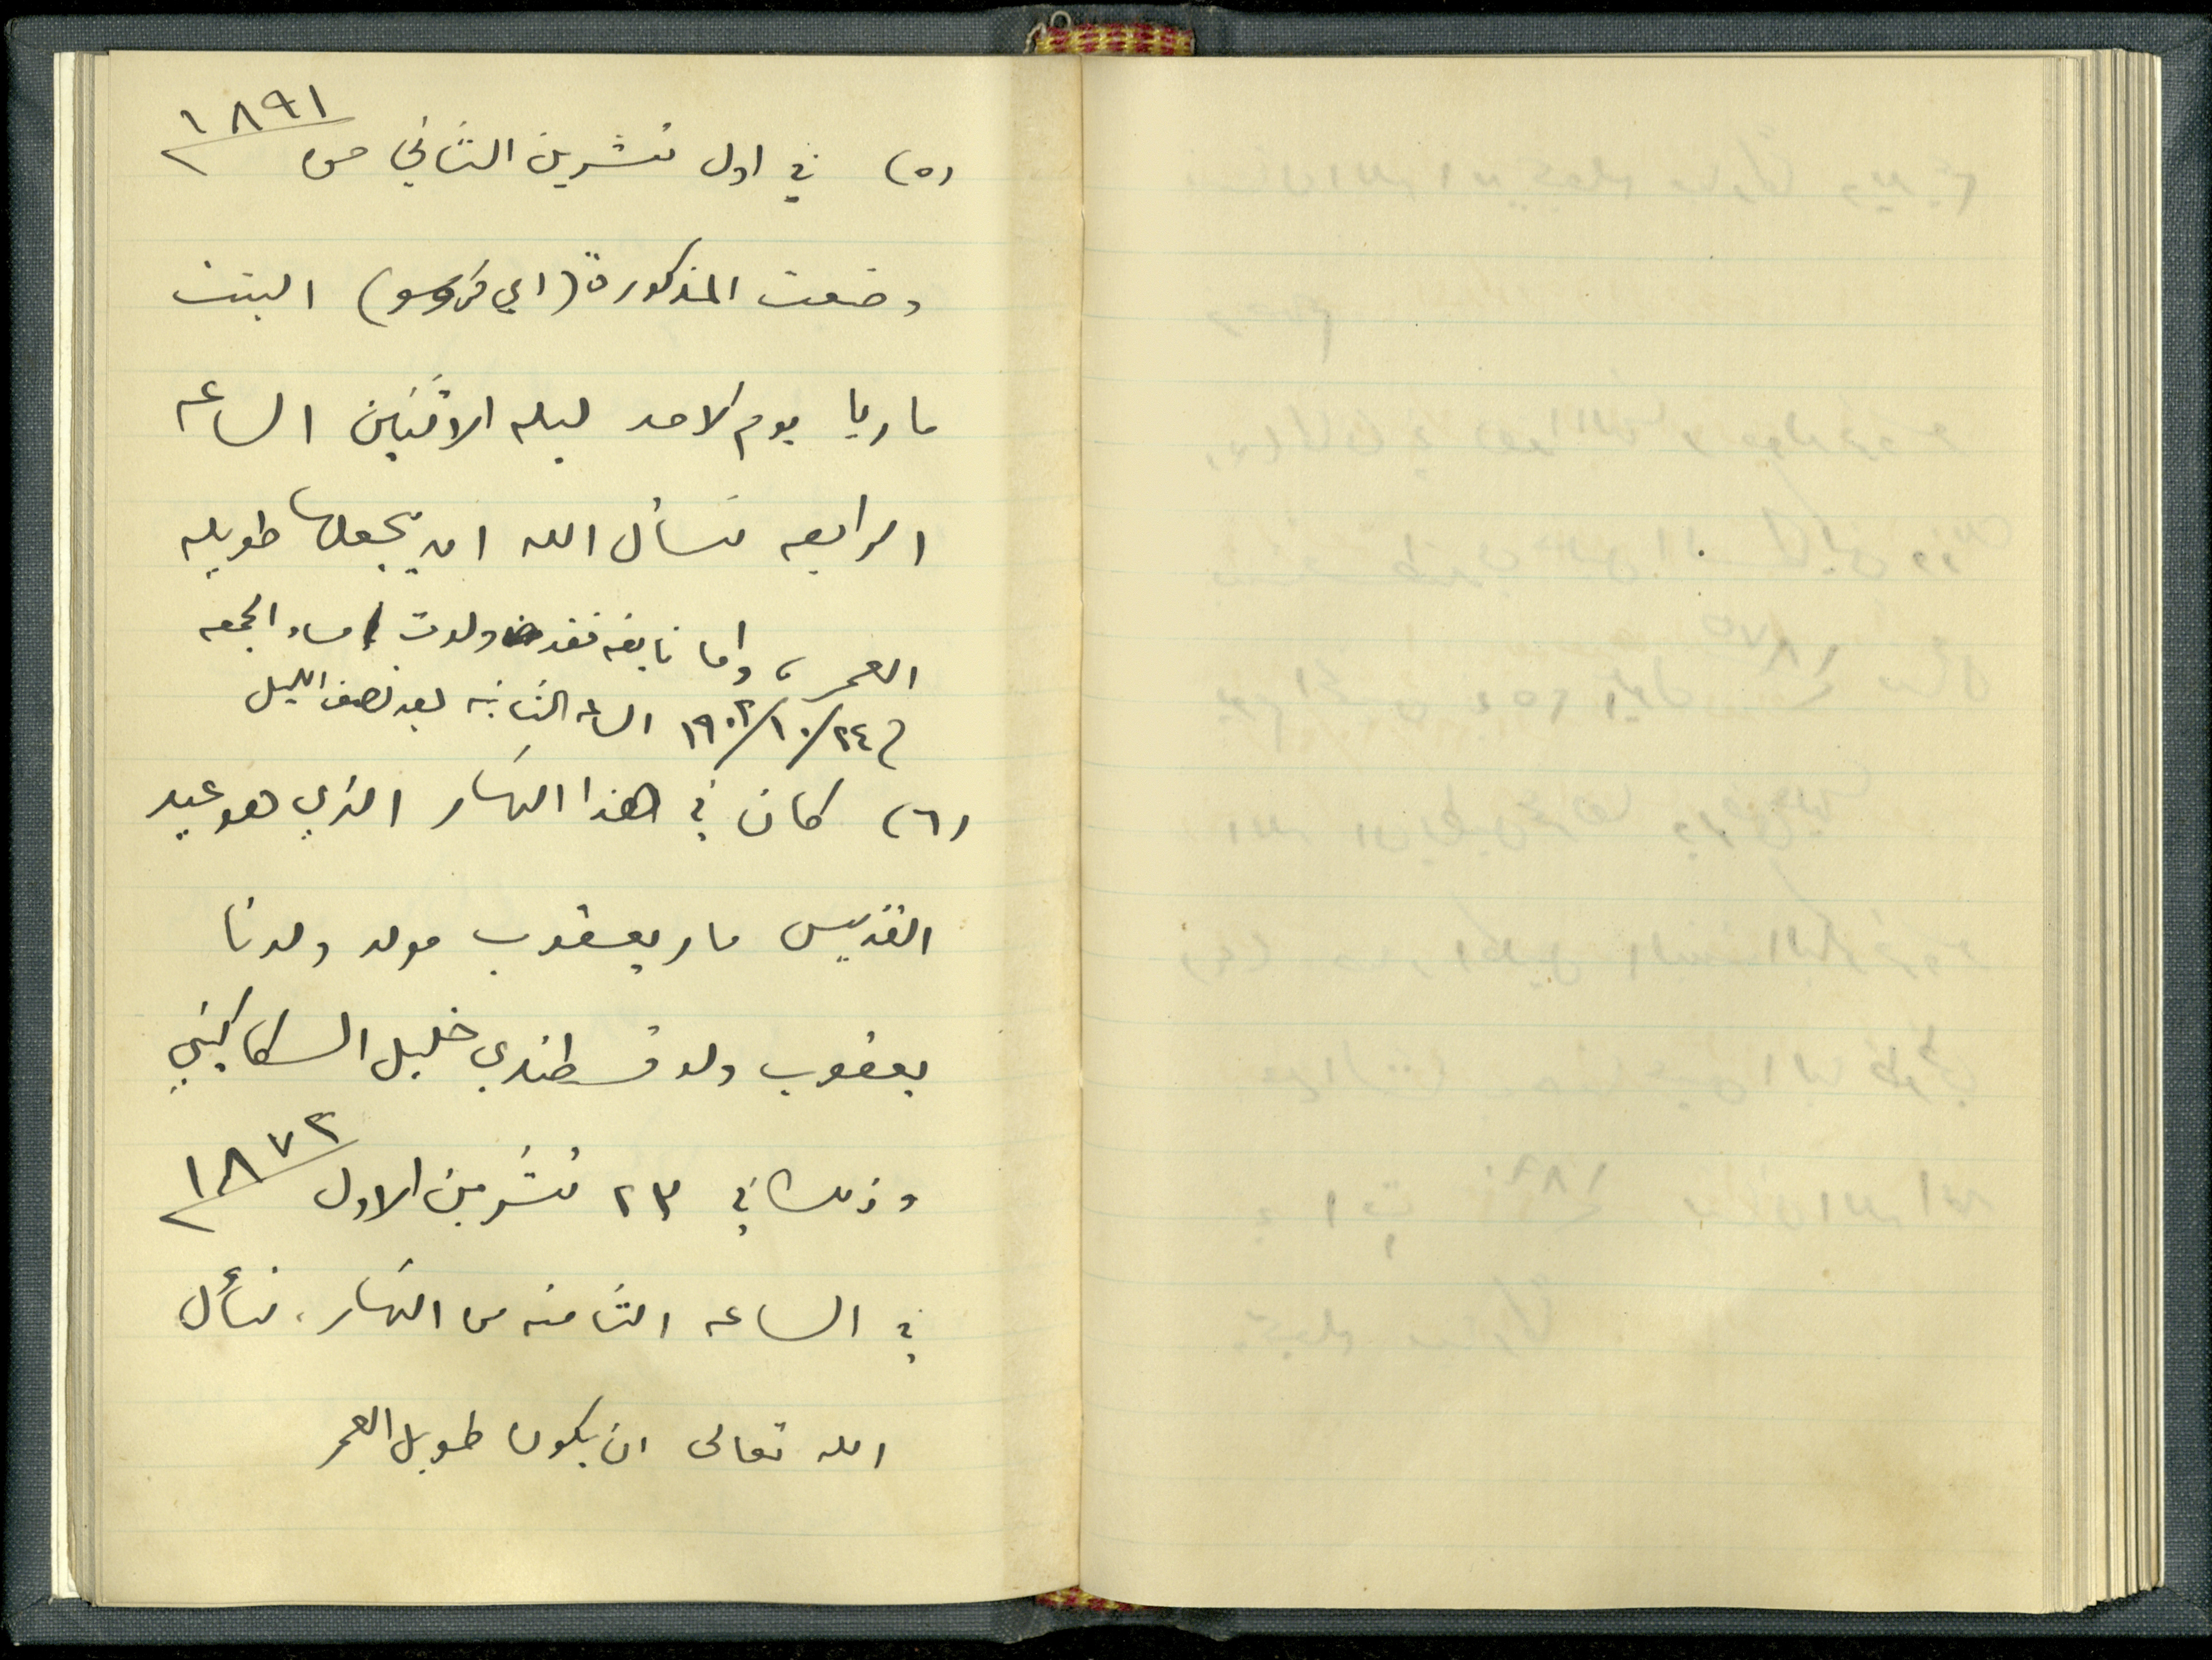 (٥) في اول تشرين الثاني ١٨٩١
وضعت المذكورة (اي فروسو) البنت
ماريا يوم الاحد ليله الاثنين الساعه
الرابعه نسأل الله ان يجعلها طويله
العمر، واما نايفه فقد ولدت مساء الجمعه
٢٤/١٠/١٩٠٢ الساعه الثانيه بعد نصف الليل
(٦) كان في هذا النهار الذي هو عيد
القديس مار يعقوب مولد ولدنا
يعقوب ولد قسطندي خليل السكاكيني
وذلك في ٢٣ تشرين الاول ١٨٧٢
في الساعه الثامنه من النهار. نسأل
الله تعالى ان يكون طويل العمر